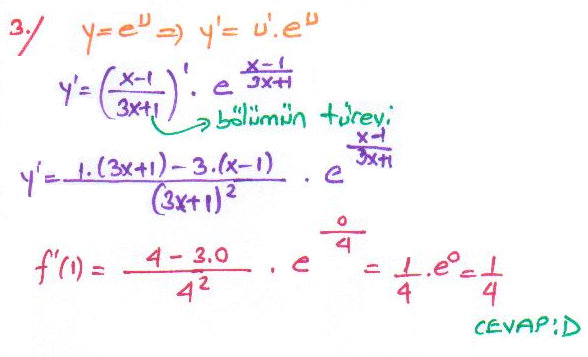 3./ y=e^u ⇒ y'= u'.e^u
y'=((x-1)/(3x+1))' . e^((x-1)/(3x+1))
→ bölümün türevi
y'= (1.(3x+1)-3.(x-1))/(3x+1)^2 . e^((x-1)/(3x+1))
f'(1) = (4-3.0)/4^2 . e^(0/4) = 1/4 .e^0 = 1/4
CEVAP:D